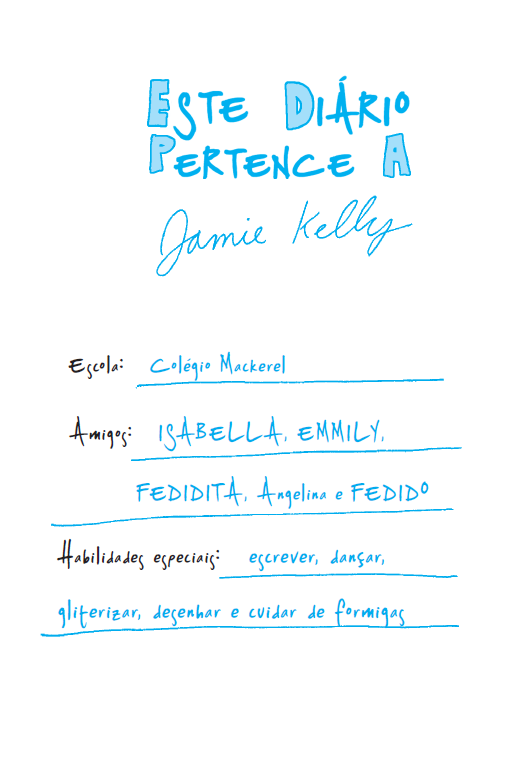 ESTE DIÁRIO
PERTENCE A
Jamie Kelly
Escola: Colégio Mackerel
Amigos: ISABELLA, EMMILY,
FEDIDITA, Angelina e FEDIDO
Habilidades especiais: escrever, dançar,
gliterizar, desenhar e cuidar de formigas